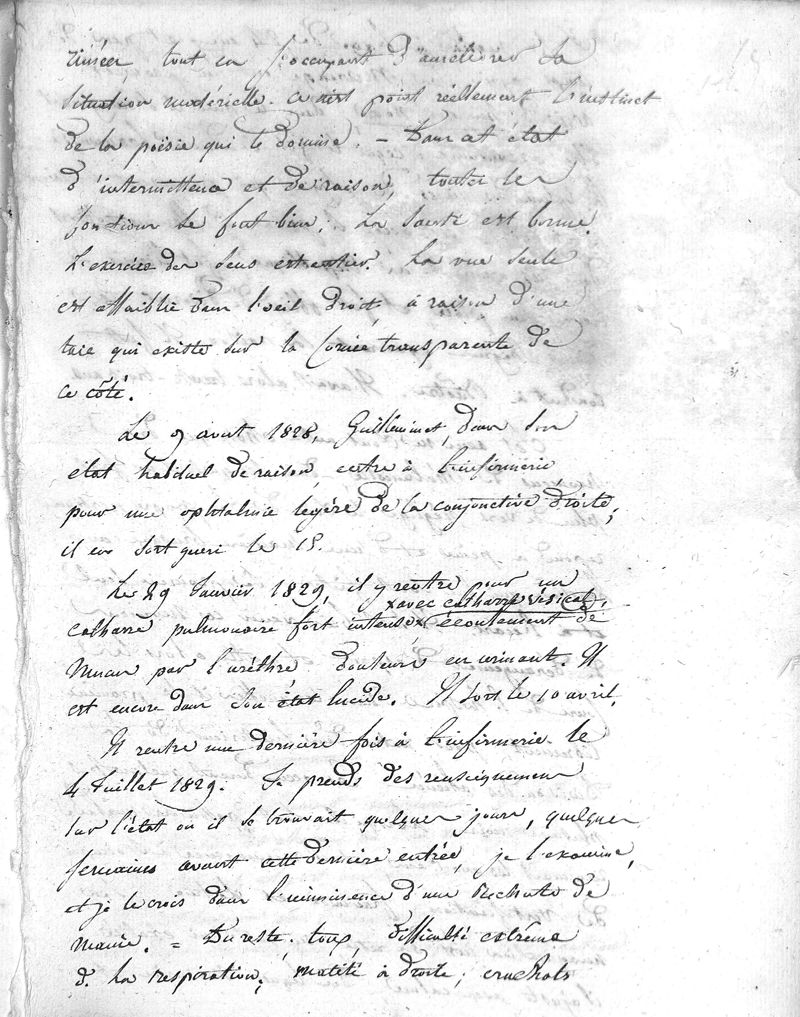 rimées, tout en s'occupant d'améliorer sa
situation matérielle. Ce n'est point réellement l'instinct
de la poësie qui le domine. - Dans cet état
d'intermittence et de raison, toutes les
fonctions se font bien; la santé est bonne.
L'exercice des sens est entier. La vue seule
est affaiblie dans l'oeil droit, à raison d'une
taie qui existe sur la Cornée transparente de
ce côté.
Le 9 aout 1828, Guilleminot, dans son
état habituel de raison, entre à l'infirmerie
pour une ophtalmie legére de la conjonctive droite;
il en sort gueri le 15.
Le 29 Janvier 1829, il y rentre pour un
x avec catharre vésical,
catharre pulmonaire fort intense x écoulement de
mucus par l'uréthre douleurs en urinant. Il
est encore dans son état lucide. Il sort le 10 avril.
Il rentre une dernière fois à l'infirmerie le
4 Juillet 1829. Je prends des renseignemens
sur l'état où il se trouvait quelques jours, quelques
semaines avant cette dernière entrée, je l'examine,
et je le crois dans l'imminence d'une Rechute de
manie. = Du reste toux, difficulté extrême
de la respiration; matité à droite; crachats